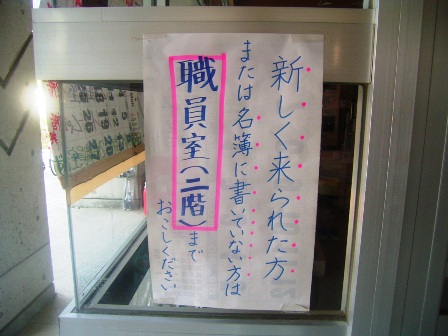 新しく来られた方
または名簿に書いていない方は
職員室(二階)まで
おこしください